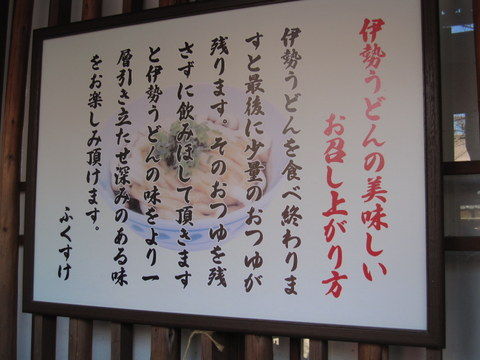 伊勢うどんの美味しい
お召し上がり方
伊勢うどんを食べ終わりま
すと最後に少量のおつゆが
残ります。そのおつゆを残
さずに飲みほして頂きます
と伊勢うどんの味をより一
層引き立たせ深みのある味
をお楽しみ頂けます。
ふくすけ